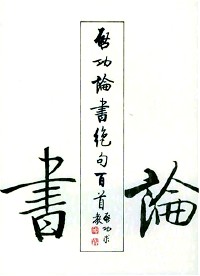 論書
啓功論書絶句百首